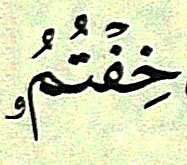 خِفۡتُمُۥ